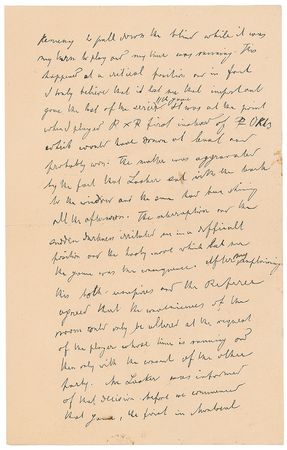 to pull down the blind while it was
my turn to play and my time was running. This
happened at a critical position and in fact
I truly believe that it lost me that important
game the best of the series. It was at the point
when I played R x R first instead of
which would have drawn at least and
probably won. The matter was aggravated
by the fact that Lasker sat with the back
to the window and the same had been shining
all the afternoon. The interruption and the
sudden darkness irritated me in a difficult
position and the hasty move which lost me
the game was the consequence. After my complaining
this both umpires and the Referee
agreed that the conveniences of the
room could only be altered at the request
of the player whose time is running and
then only with the consent of the other
party. Mr Lasker was informed
of that decision before we commenced
that game, the first in Montreal